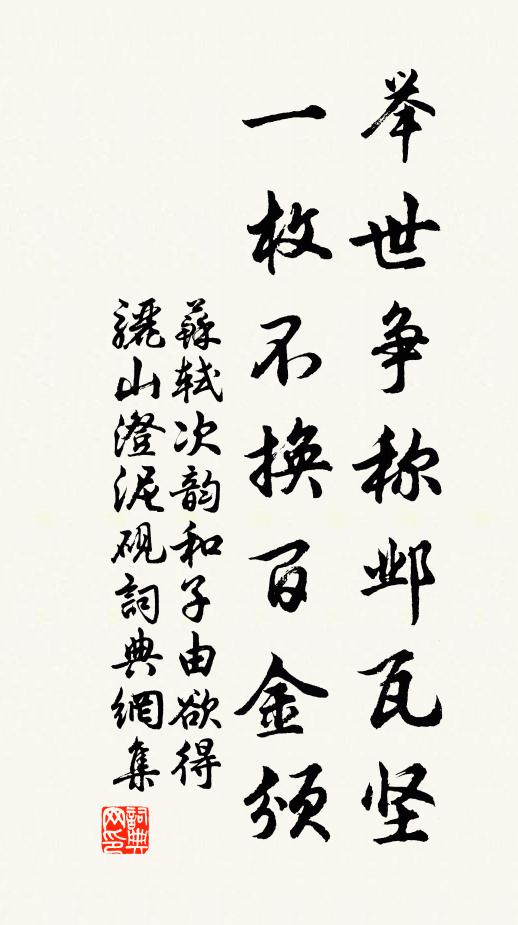 举世争称邺瓦坚
一枚不换百金颁
蘇轼次韵和子由欲得
骊山澄泥砚詞典網集
詞典网印